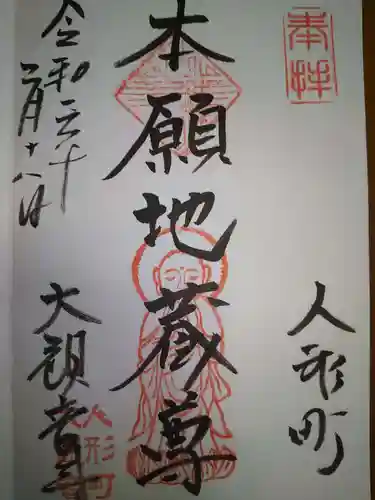 奉拝
人形町
本願地蔵尊
令和
月十八日
大観音寺
人形町